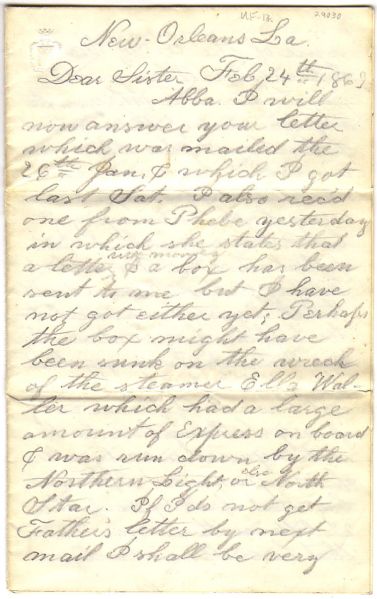 UF-13.
29030
New-Orleans La.
Dear Sister Feb 24th 1863
Abba. I will
now answer your letter
which was mailed the
26th Jan, & which I got
last Sat. I also rec'd
one from Phebe yesterday
in which she states that
with money
a letter & a box has been
sent to me but I have
not got either yet; Perhaps
the box might have
been sunk on the wreck
of the steamer Ella Wal-
ler which had a large
amount of Express on board
& was run down by the
Northern-Light, or also North
Star. If I do not get
Father's letter by next
mail I shall be very